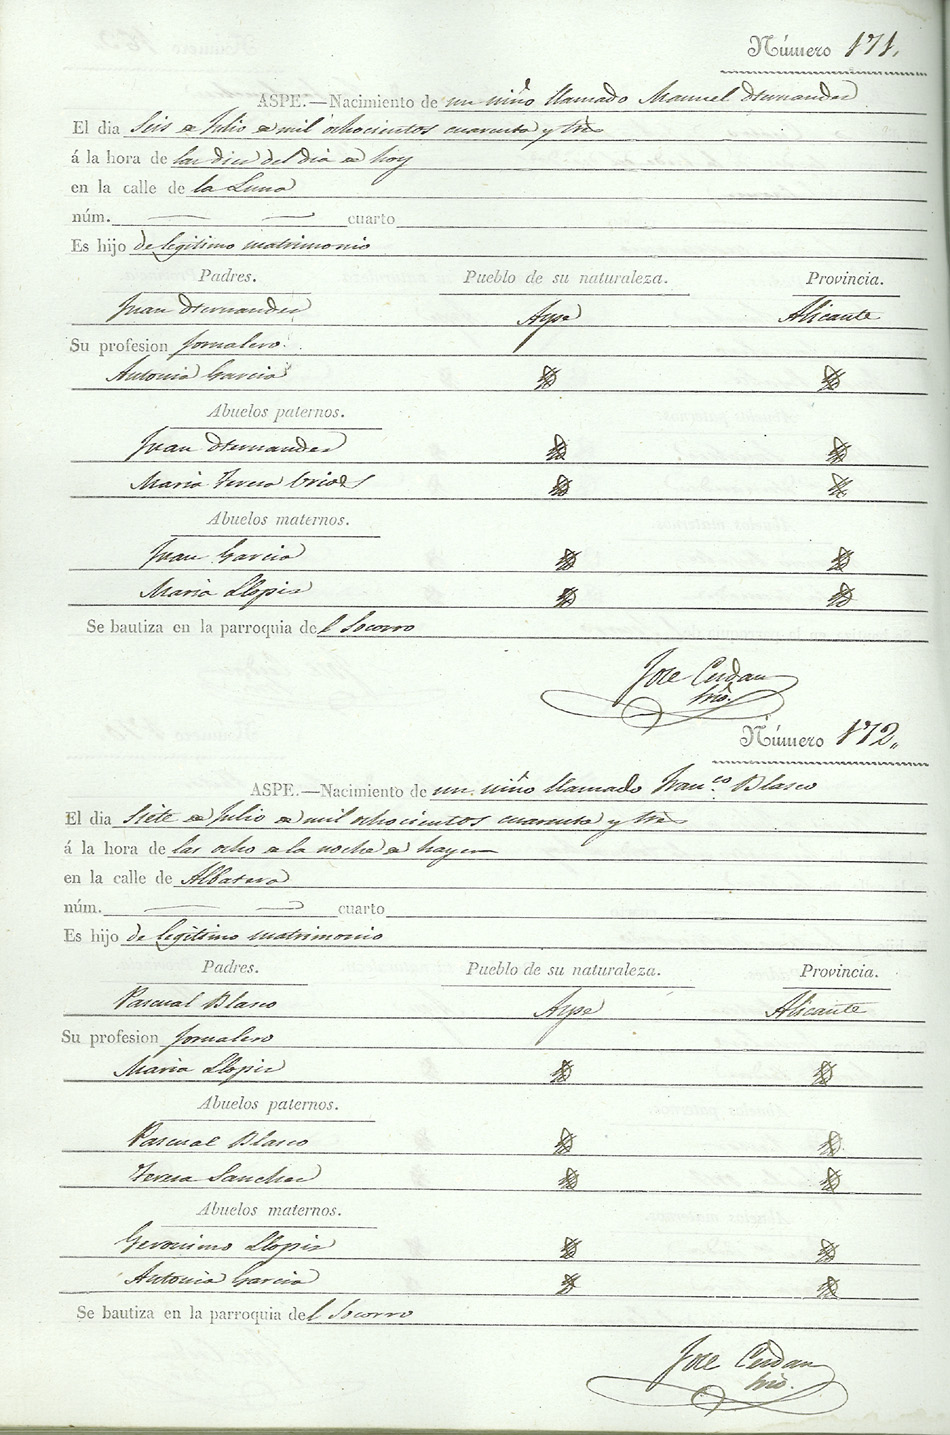 Número 171.
ASPE.—Nacimiento de un niño llamado Manuel Hernandez
El dia Seis de Julio de mil ochocientos cuarenta y tres
á la hora de las diez del dia de hoy
en la calle de la Luna
núm. cuarto
Es hijo de legitimo matrimonio
Padres. Pueblo de su naturaleza. Provincia.
Juan Hernandez Aspe Alicante
Su profesion Jornalero
Antonia Garcia
Abuelos paternos.
Juan Hernandez
Maria Teresa
Abuelos maternos.
Juan Garcia
Maria Llopis
Se bautiza en la parroquia del Socorro
Jose Cerdan
Número 172.
ASPE.—Nacimiento de un niño llamado Franco. Blasco
El dia Siete de Julio de mil ochocientos cuarenta y tres
á la hora de las ocho de la noche de hayer
en la calle de Albatera
núm. cuarto
Es hijo de legitimo matrimonio
Padres. Pueblo de su naturaleza. Provincia.
Pascual Blasco Aspe Alicante
Su profesion Jornalero
Maria Llopis
Abuelos paternos.
Pascual Blasco
Teresa Sanchez
Abuelos maternos.
Geronimo Llopis
Antonia Garcia
Se bautiza en la parroquia del Socorro
Jose Cerdan